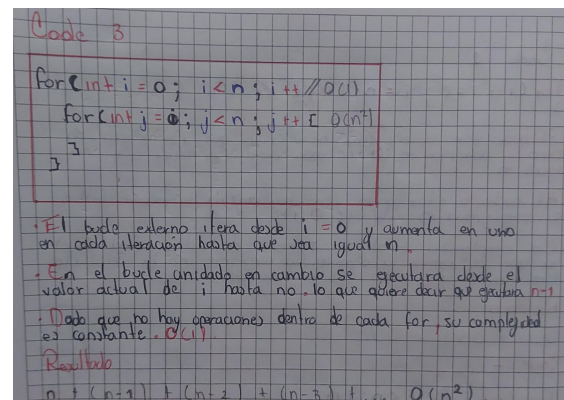 Code 3
for(int i = 0; i < n; i++ //O(1)
for(int j = i; j < n; j++ [ O(n²)
}
}
. El bucle externo itera desde i = 0 y aumenta en uno
en cada iteración hasta que sea igual n.
. En el bucle anidado en cambio se ejecutara desde el
valor actual de i hasta no, lo que quiere decir que ejecutara n-1
. Dado que no hay operaciones dentro de cada for, su complejidad
es constante. O(1)
Resultado
n + (n-1) + (n-2) + (n-3) + ... O(n²)